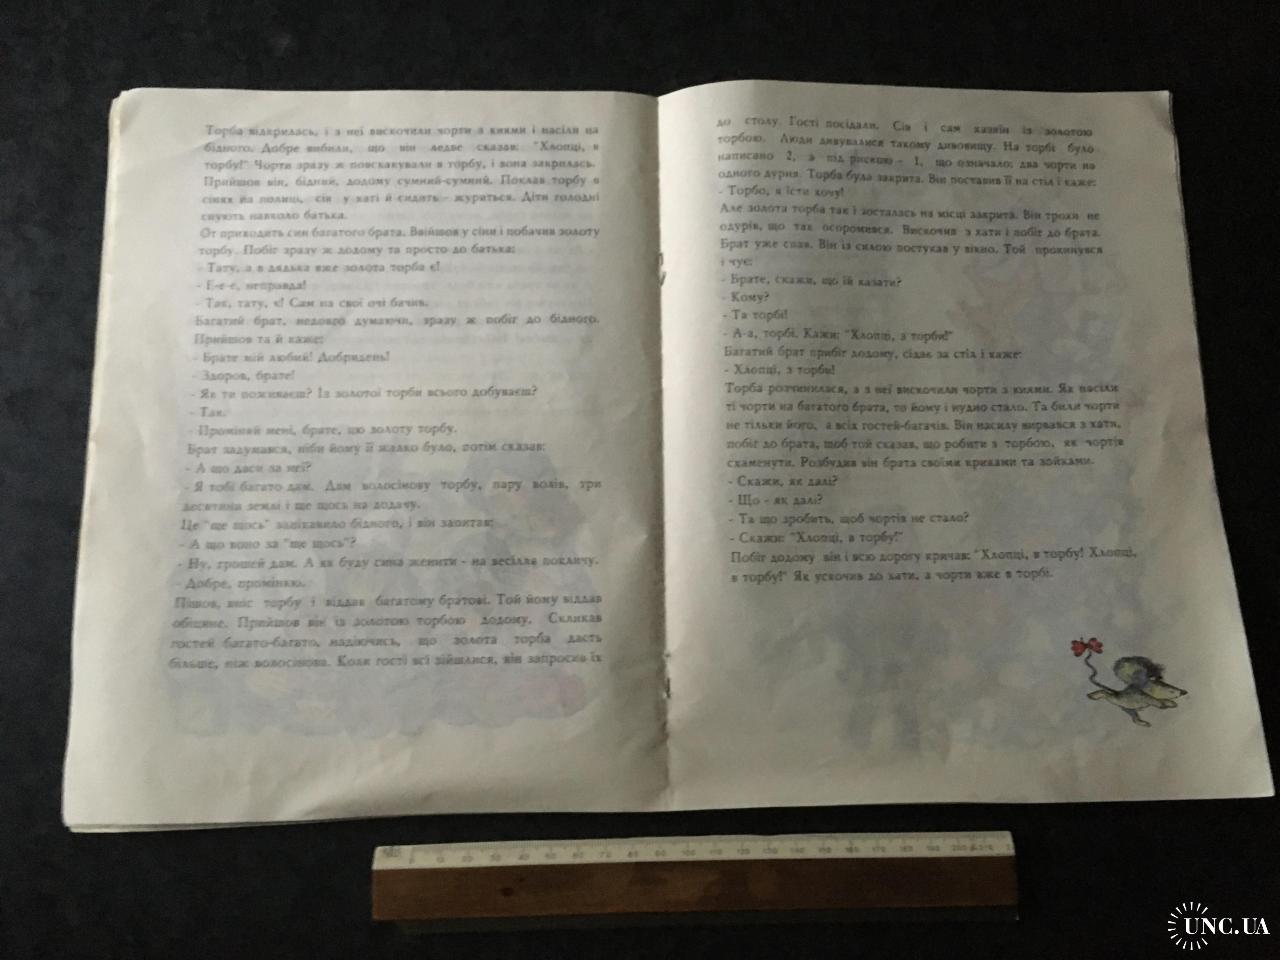 Торба відкрилась, і з неї вискочили чорти з киями і насіли на
бідного. Добре вибили, що він ледве сказав: "Хлопці, в
торбу!" Чорти зразу ж повскакували в торбу, і вона закрилась.
Прийшов він, бідний, додому сумний-сумний. Поклав торбу в
сінях на полиці, сів у хаті й сидить - журиться. Діти голодні
снують навколо батька.
От приходить син багатого брата. Ввійшов у сіни і побачив золоту
торбу. Побіг зразу ж додому та просто до батька:
- Тату, а в дядька вже золота торба є!
- Е-е-е, неправда!
- Так, тату, є! Сам на свої очі бачив.
Багатий брат, недовго думаючи, зразу ж побіг до бідного.
Прийшов та й каже:
- Брате мій любий! Добридень!
- Здоров, брате!
- Як ти поживаєш? Із золотої торби всього добуваєш?
- Так.
- Проміняй мені, брате, цю золоту торбу.
Брат задумався, ніби йому її жалко було, потім сказав:
- А що даси за неї?
- Я тобі багато дам. Дам волосінову торбу, пару волів, три
десятини землі і ще щось на додачу.
Це "ще щось" зацікавило бідного, і він запитав:
- А що воно за "ще щось"?
- Ну, грошей дам. А як буду сина женити - на весілля покличу.
- Добре, проміняю.
Пішов, вніс торбу і віддав багатому братові. Той йому віддав
обіцяне. Прийшов він із золотою торбою додому. Скликав
гостей багато-багато, надіючись, що золота торба дасть
більше, ніж волосінова. Коли гості всі зійшлися, він запросив їх
до столу. Гості посідали. Сів і сам хазяїн із золотою
торбою. Люди дивувалися такому дивовищу. На торбі було
написано 2, а під рискою - 1, що означало: два чорти на
одного дурня. Торба була закрита. Він поставив її на стіл і каже:
- Торбо, я їсти хочу!
Але золота торба так і зосталась на місці закрита. Він трохи не
одурів, що так осоромився. Вискочив з хати і побіг до брата.
Брат уже спав. Він із силою постукав у вікно. Той прокинувся
і чує:
- Брате, скажи, що їй казати?
- Кому?
- Та торбі!
- А-а, торбі. Кажи: "Хлопці, з торби!"
Багатий брат прибіг додому, сідає за стіл і каже:
- Хлопці, з торби!
Торба розчинилася, а з неї вискочили чорти з киями. Як насіли
ті чорти на багатого брата, то йому і нудно стало. Та били чорти
не тільки його, а всіх гостей-багачів. Він насилу вирвався з хати,
побіг до брата, щоб той сказав, що робити з торбою, як чортів
схаменути. Розбудив він брата своїми криками та зойками.
- Скажи, як далі?
- Що - як далі?
- Та що зробить, щоб чортів не стало?
- Скажи: "Хлопці, в торбу!"
Побіг додому він і всю дорогу кричав: "Хлопці, в торбу! Хлопці,
в торбу!" Як ускочив до хати, а чорти вже в торбі.
0 10 20 30 40 50 60 70 80 90 100 110 120 130 140 150 160 170 180 190 200 210
UNC.UA